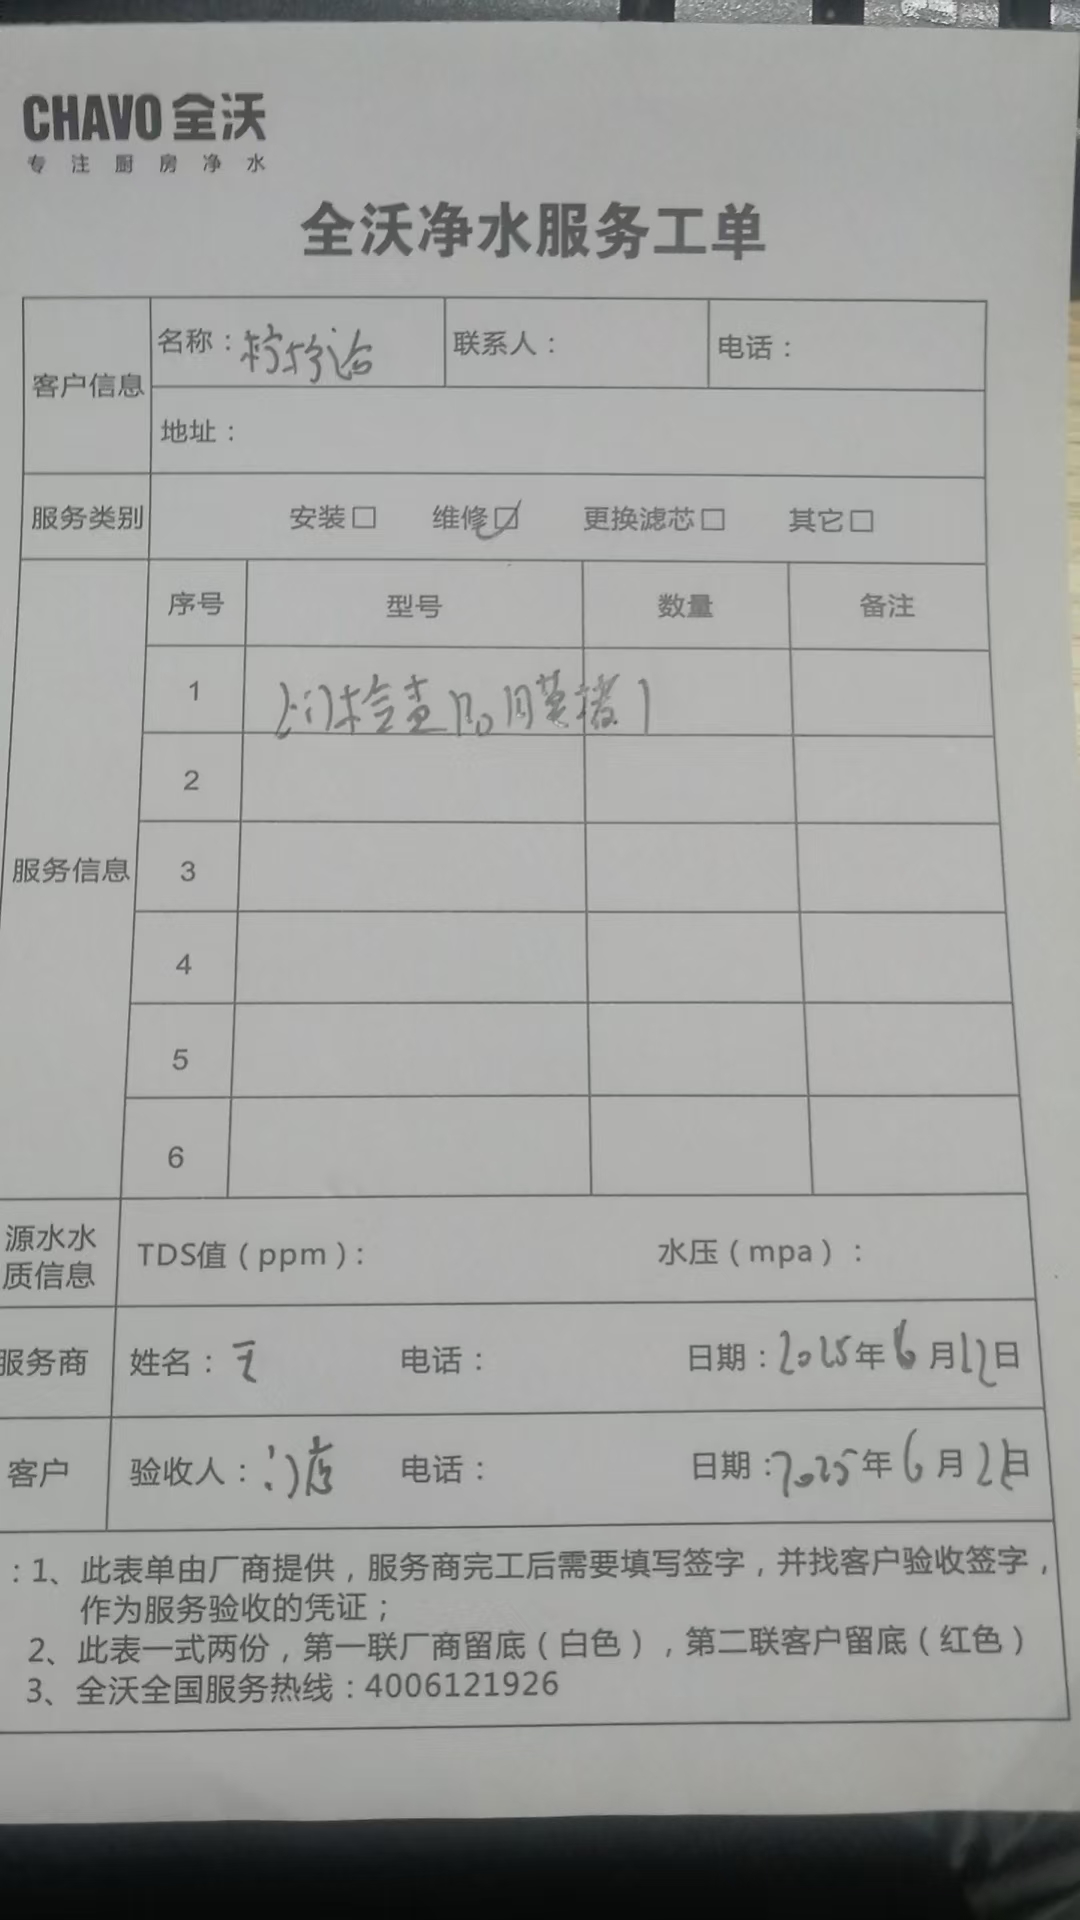 CHAVO 全沃
专注厨房净水
全沃净水服务工单
客户信息
名称：柠柠洽
联系人：
电话：
地址：
服务类别
安装□ 维修☑ 更换滤芯□ 其它□
服务信息
序号 型号 数量 备注
1 上门检查Ro膜堵了
2
3
4
5
6
源水水质信息
TDS值（ppm）： 水压（mpa）：
服务商 姓名：王 电话： 日期：2025年6月12日
客户 验收人：门店 电话： 日期：2025年6月21日
：1、此表单由厂商提供，服务商完工后需要填写签字，并找客户验收签字，
作为服务验收的凭证；
2、此表一式两份，第一联厂商留底（白色），第二联客户留底（红色）
3、全沃全国服务热线：4006121926